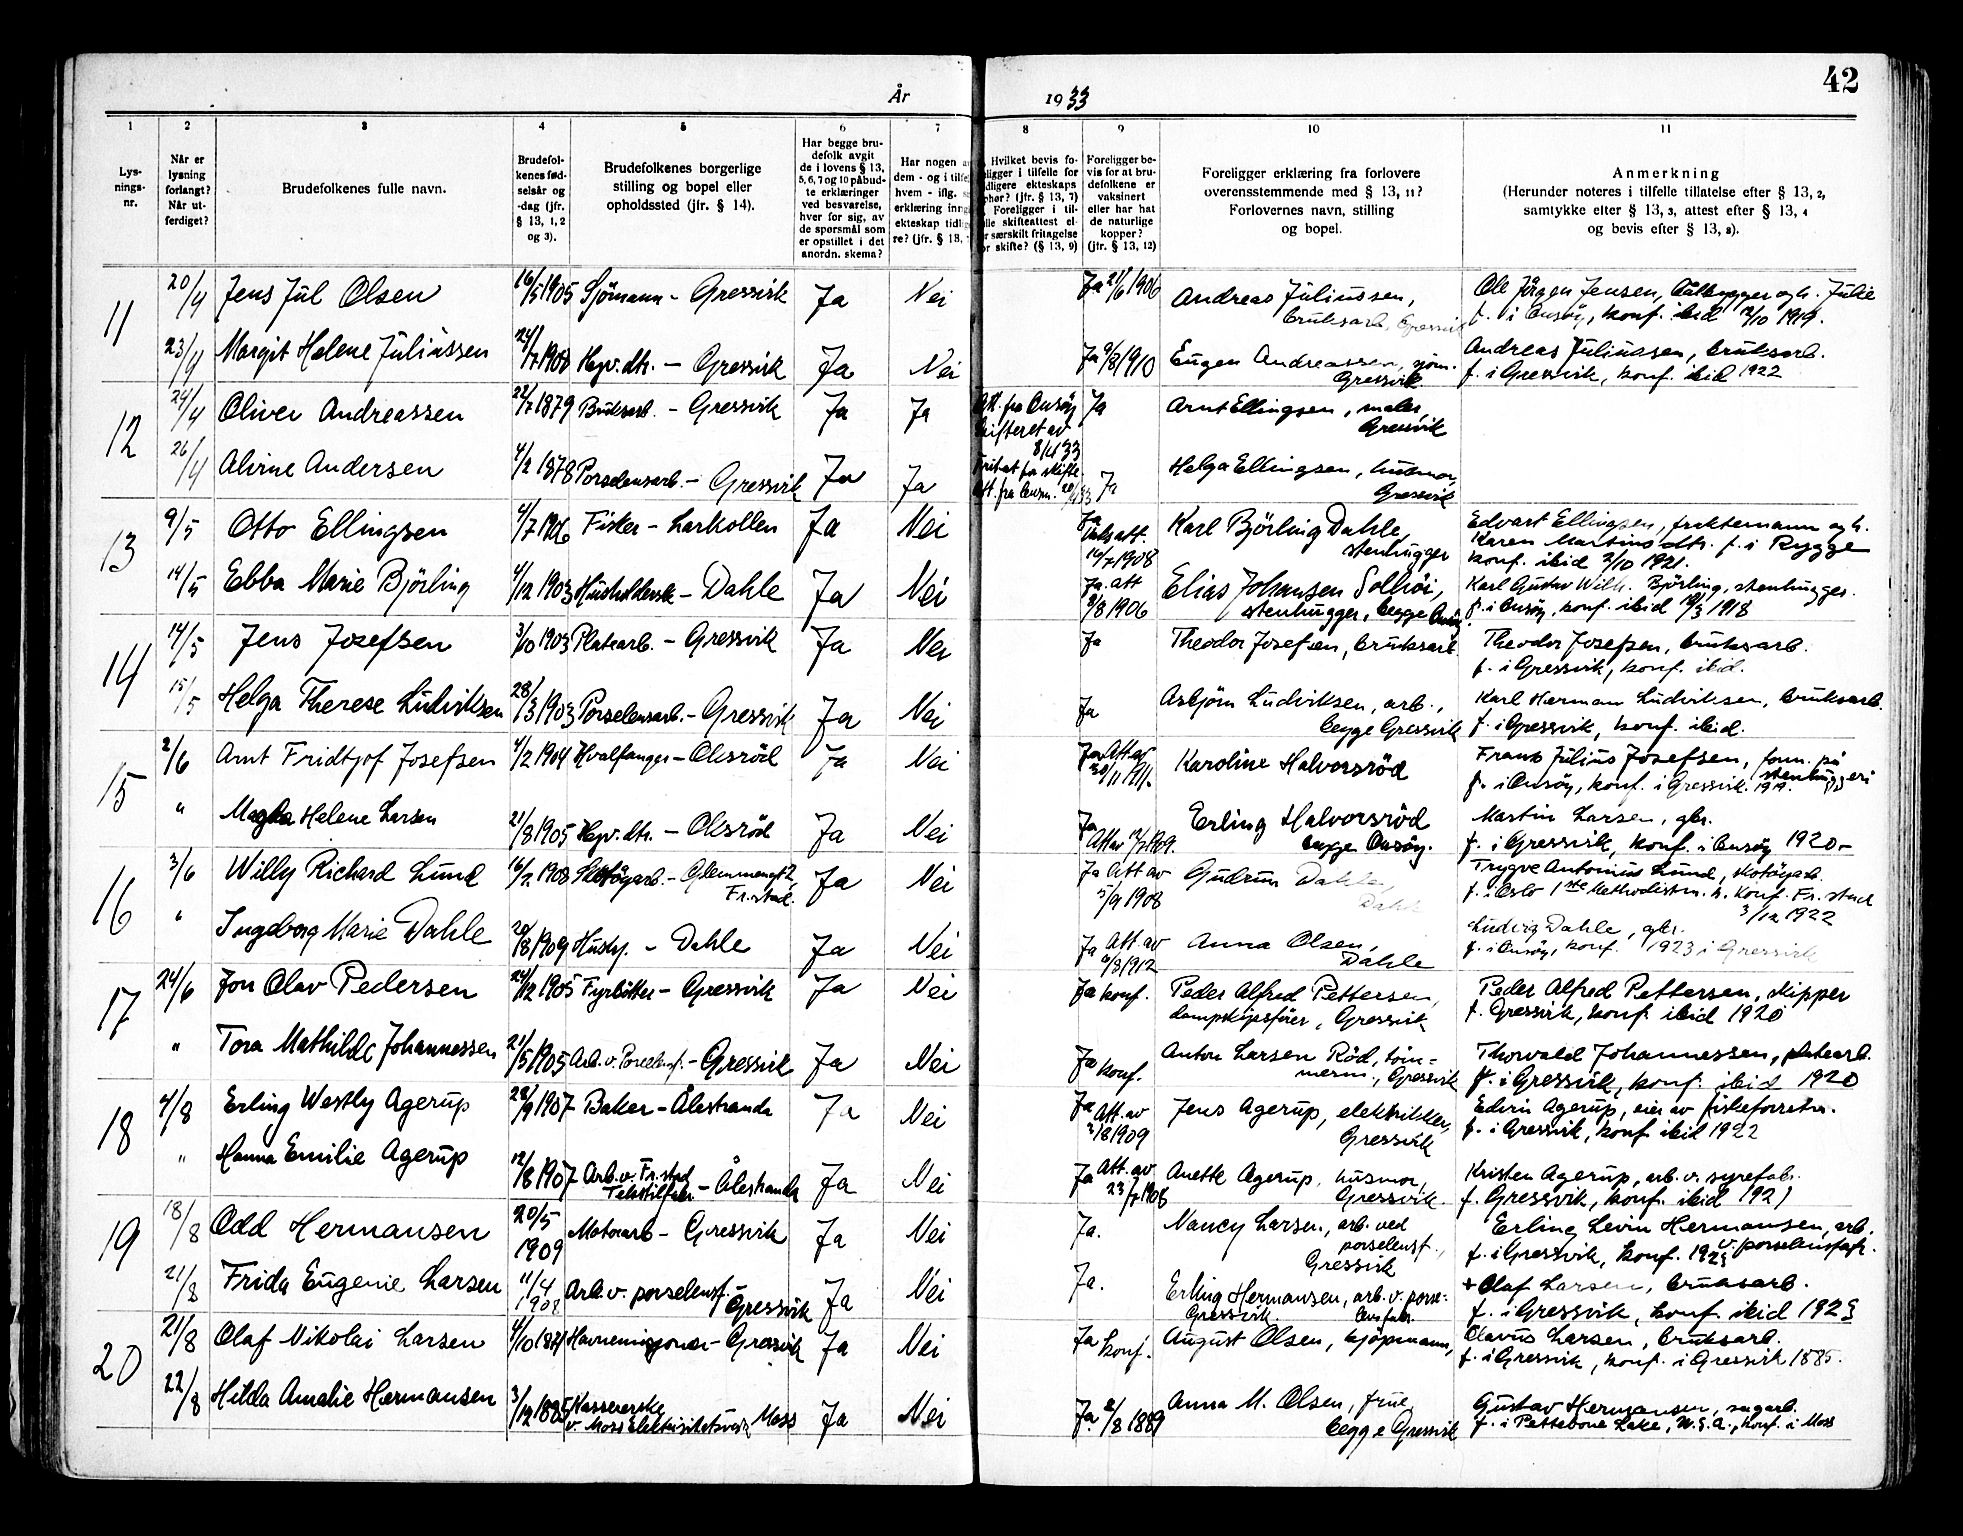 42
År 1933
1 2 3 4 5 6 7 8 9 10 11
Lys-
nings-
nr.
Når er
lysning
forlangt?
Når ut-
ferdiget?
Brudefolkenes fulle navn.
Brudefol-
kenes fød-
selsår og
-dag (jfr.
§ 13, 1, 2
og 3).
Brudefolkenes borgerlige
stilling og bopel eller
opholdssted (jfr. § 14).
Har begge bru-
defolk avgit
de i lovens § 13,
5, 6, 7 og 10 påbud-
te erklæringer
ved besvarelse,
hver for sig, av
de spørsmål som
er opstillet i det
anordn. skema?
Har nogen a
dem - og i tilfe
hvem - iflg. s
erklæring inng
ekteskap tidlig
re? (jfr. § 13,
Hvilket bevis fo-
ligger i tilfelle for
dligere ekteskaps
phør? (jfr. § 13, 7)
Foreligger i til-
elle skifteattest el-
r særskilt fritagelse
or skifte? (§ 13, 9)
Foreligger be-
vis for at bru-
defolkene er
vaksinert
eller har hat
de naturlige
kopper?
(jfr. § 13, 12)
Foreligger erklæring fra forlovere
overensstemmende med § 13, 11?
Forlovernes navn, stilling
og bopel.
Anmerkning
(Herunder noteres i tilfelle tillatelse efter § 13, 2,
samtykke efter § 13, 3, attest efter § 13, 4
og bevis efter § 13, 8).
11 20/4 Jens Jul Olsen 16/5 1905 Sjömann - Gressvik Ja Nei Ja 21/6 1906 Andreas Juliussen,
bruksarb. Gressvik
Ole Jörgen Jensen, Båtbygger og h. Julie
f. i Onsöy, konf. ibid 12/10 1919.
23/4 Margit Helene Juliussen 24/7 1908 Hgv. dtr. - Gressvik Ja Nei Ja 9/8 1910 Eugen Andreassen, sjöm.
Gressvik
Andreas Juliussen, bruksarb.
f. i Gressvik, konf. ibid 1922
12 24/4 Oliver Andreassen 22/7 1879 Bruksarb. - Gressvik Ja Ja Att. fra Onsöy
skifteret av
8/4 33 Ja Arnt Ellingsen, maler,
Gressvik
26/4 Alvine Andersen 4/2 1878 Porselensarb. - Gressvik Ja Ja Fritat for skifte
att. fra Onsøy 20/4 33 Ja Helga Ellingsen, husmor,
Gressvik
13 9/5 Otto Ellingsen 4/7 1906 Fisker - Larkollen Ja Nei Ja
Vaks att.
16/7 1908 Karl Björling Dahle,
stenhugger
Edvart Ellingsen, fraktemann og h.
Karen Martins dtr. f. i Rygge
konf. ibid 2/10 1921.
14/5 Ebba Marie Björling 4/12 1903 Husholderske - Dahle Ja Nei Ja. att
9/8 1906 Elias Johansen Solhöi,
stenhugger, begge Onsöy.
Karl Gustav Wilh. Björling, stenhugger.
f. i Onsöy, konf. ibid 10/3 1918
14 14/5 Jens Josefsen 3/10 1903 Platearb. - Gressvik Ja Nei Ja Theodor Josefsen, bruksarb.
Theodor Josefsen, bruksarb.
f. i Gressvik, konf. ibid.
15/5 Helga Therese Ludviksen 28/3 1903 Porselensarb. - Gressvik Ja Nei Ja Asbjörn Ludviksen, arb.,
begge Gressvik
Karl Herman Ludviksen, bruksarb.
f. i Gressvik, konf. ibid.
15 2/6 Arnt Fridtjof Josefsen 4/2 1904 Hvalfanger - Oksröd Ja Nei Ja Att av
30/11 1911. Karoline Halvorsröd
Frants Julius Josefsen, form. på
stenhuggeri
f. i Onsöy, konf. i Gressvik. 1919.
" Magda Helene Larsen 21/8 1905 Hgv. dtr. - Oksröd Ja Nei Ja
Att av 12/7 1909. Erling Halvorsröd
begge Onsöy.
Martin Larsen, gbr.
f. i Gressvik, konf. i Onsöy 1920-
16 3/6 Willy Richard Lund 16/2 1908 Skotöyarb. - Glemmengt 2,
Fr.stad. Ja Nei Ja Att av
5/9 1908 Gudrun Dahle,
Dahle
Trygve Antonius Lund, skotöyarb.
f. i Oslo 1ste Methodistm. h. konf. Fr. stad
3/12 1922
" Ingeborg Marie Dahle 20/8 1909 Hustj. - Dahle Ja Nei Ja Att av
6/8 1912 Anna Olsen,
Dahle
Ludvig Dahle, gbr.
f. i Onsöy, konf. 1923 i Gressvik
17 24/6 Jon Olav Pedersen 24/12 1905 Fyrböter - Gressvik Ja Nei Ja konf. Peder Alfred Pettersen,
dampskipsförer, Gressvik
Peder Alfred Pettersen, skipper
f. Gressvik, konf. ibid 1920
" Tora Mathilde Johannessen 21/5 1905 Arb. v. Porselensf. - Gressvik Ja Nei Ja konf. Anton Larsen Röd, töm-
merm., Gressvik
Thorvald Johannessen, platearb.
f. i Gressvik, konf. ibid 1920
18 4/8 Erling Westly Agerup 28/9 1907 Baker - Ålestranda Ja Nei Ja
Att. av
3/8 1909 Jens Agerup, elektriker,
Gressvik
Edvin Agerup, eier av fiskeforretn.
f. i Gressvik, konf ibid 1922
" Hanna Emilie Agerup 12/8 1907 Arb. v. Fr.stad
Tekstilfabr. - Ålestranda Ja Nei Ja Att. av
23/7 1908 Anette Agerup, husmor,
Gressvik.
Kristen Agerup, arb. v. syrefabr.
f. Gressvik, konf. ibid 1921
19 18/8 Odd Hermansen 20/5
1909 Motorarb - Gressvik Ja Nei Ja. Nancy Larsen, arb. ved
porselensf.,
Gressvik
Erling Levin Hermansen, arb.
v. porselensfabr.
f. i Gressvik, konf. 1923
21/8 Frida Eugenie Larsen 11/4
1908 Arb. v. porselensf. -
Gressvik Ja Nei Ja. Erling Hermansen, arb. v. porse-
Gressvik. lensfabr.
+ Olaf Larsen, bruksarb.
f. i Gressvik, konf. ibid 1923
20 21/8 Olaf Nikolai Larsen 4/10 1871 Havnemisjonær - Gressvik Ja Nei Ja konf. August Olsen, kjöpmann,
Olavus Larsen, bruksarb.
f. i Gressvik, konf. i Gressvik 1885.
22/8 Hilda Amalie Hermansen 3/12 1885 Kassererske
v. Moss Elektrisitetsverk Moss Ja Nei Ja. 2/8 1889 Anna M. Olsen, frue,
begge Gressvik
Gustav Hermansen, sagarb.
f. i Pettebone Lake, U.S.A., konf. i Moss